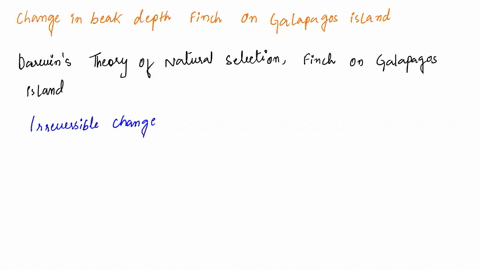 Change in beak depth Finch on Galapagos island
Darwin's Theory of Natural Selection, Finch on Galapagos
island
Irreversible change